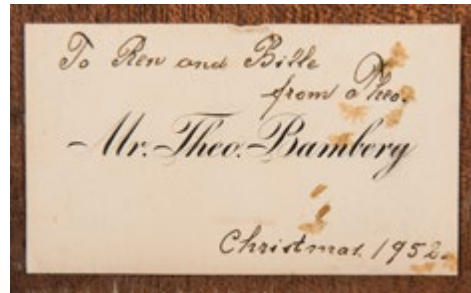 To Ren and Bille
from Theo.
Mr. Theo. Bamberg
Christmas. 1952.